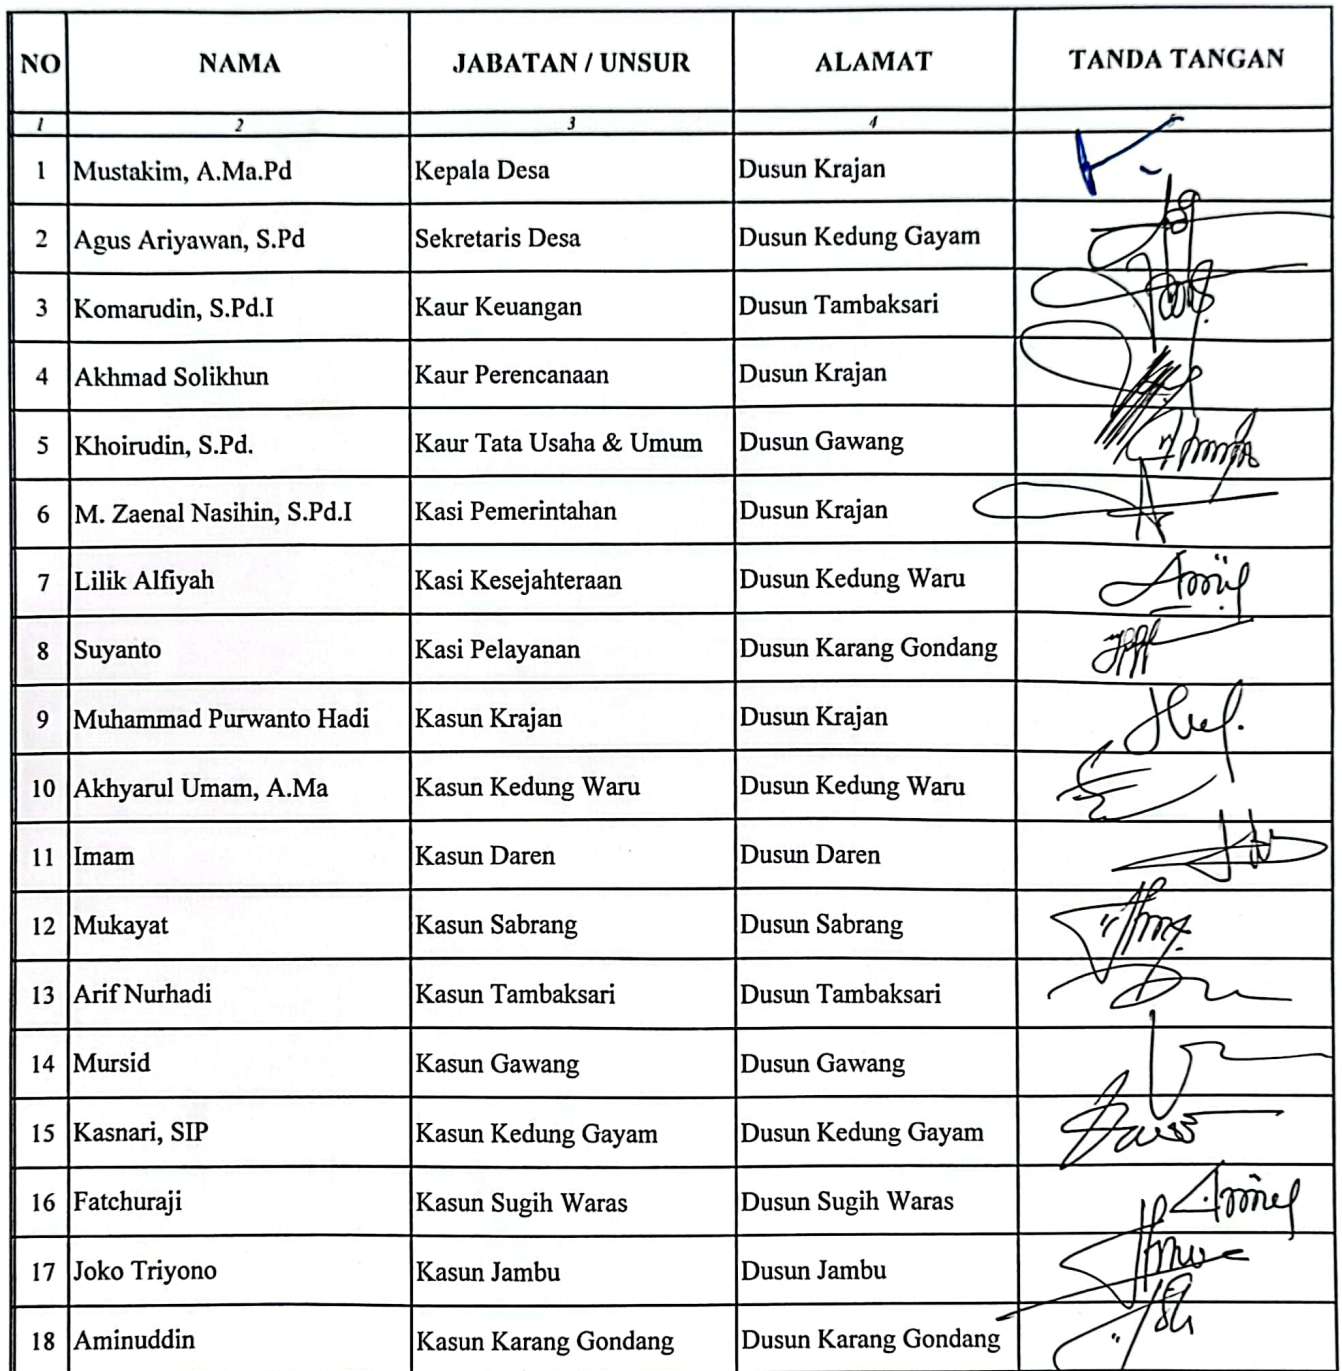 NO NAMA JABATAN / UNSUR ALAMAT TANDA TANGAN
1 2 3 4
1 Mustakim, A.Ma.Pd Kepala Desa Dusun Krajan
2 Agus Ariyawan, S.Pd Sekretaris Desa Dusun Kedung Gayam
3 Komarudin, S.Pd.I Kaur Keuangan Dusun Tambaksari
4 Akhmad Solikhun Kaur Perencanaan Dusun Krajan
5 Khoirudin, S.Pd. Kaur Tata Usaha & Umum Dusun Gawang
6 M. Zaenal Nasihin, S.Pd.I Kasi Pemerintahan Dusun Krajan
7 Lilik Alfiyah Kasi Kesejahteraan Dusun Kedung Waru
8 Suyanto Kasi Pelayanan Dusun Karang Gondang
9 Muhammad Purwanto Hadi Kasun Krajan Dusun Krajan
10 Akhyarul Umam, A.Ma Kasun Kedung Waru Dusun Kedung Waru
11 Imam Kasun Daren Dusun Daren
12 Mukayat Kasun Sabrang Dusun Sabrang
13 Arif Nurhadi Kasun Tambaksari Dusun Tambaksari
14 Mursid Kasun Gawang Dusun Gawang
15 Kasnari, SIP Kasun Kedung Gayam Dusun Kedung Gayam
16 Fatchuraji Kasun Sugih Waras Dusun Sugih Waras
17 Joko Triyono Kasun Jambu Dusun Jambu
18 Aminuddin Kasun Karang Gondang Dusun Karang Gondang